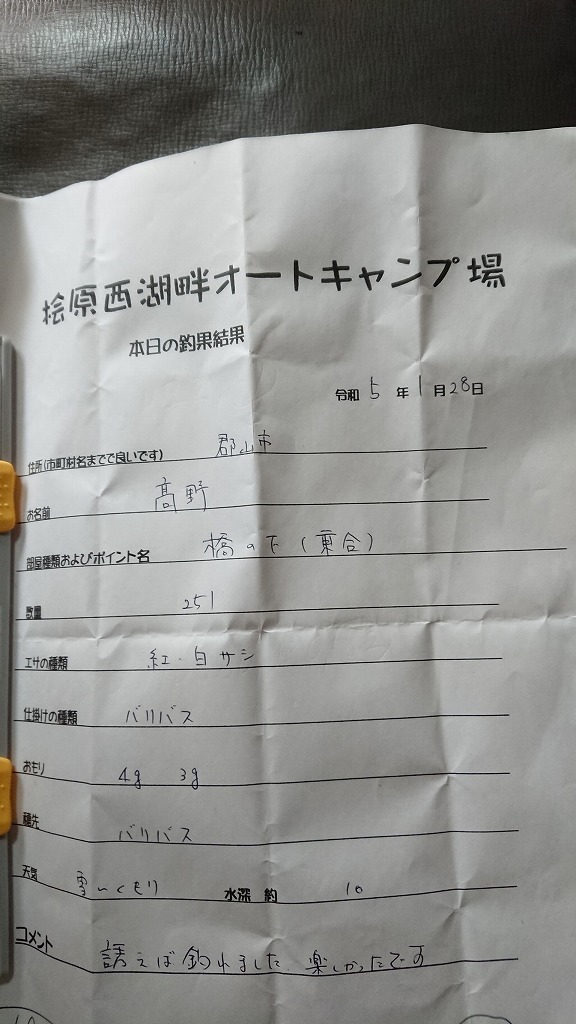 桧原西湖畔オートキャンプ場
本日の釣果結果
令和 5 年 1 月 28 日
住所(市町村名までで良いです) 郡山市
お名前 髙野
部屋種類およびポイント名 橋の下(乗合)
数量 251
エサの種類 紅・白サシ
仕掛けの種類 バリバス
おもり 4g 3g
穂先 バリバス
天気 雪〜くもり 水深 約 10
コメント 誘えば釣れました 楽しかったです